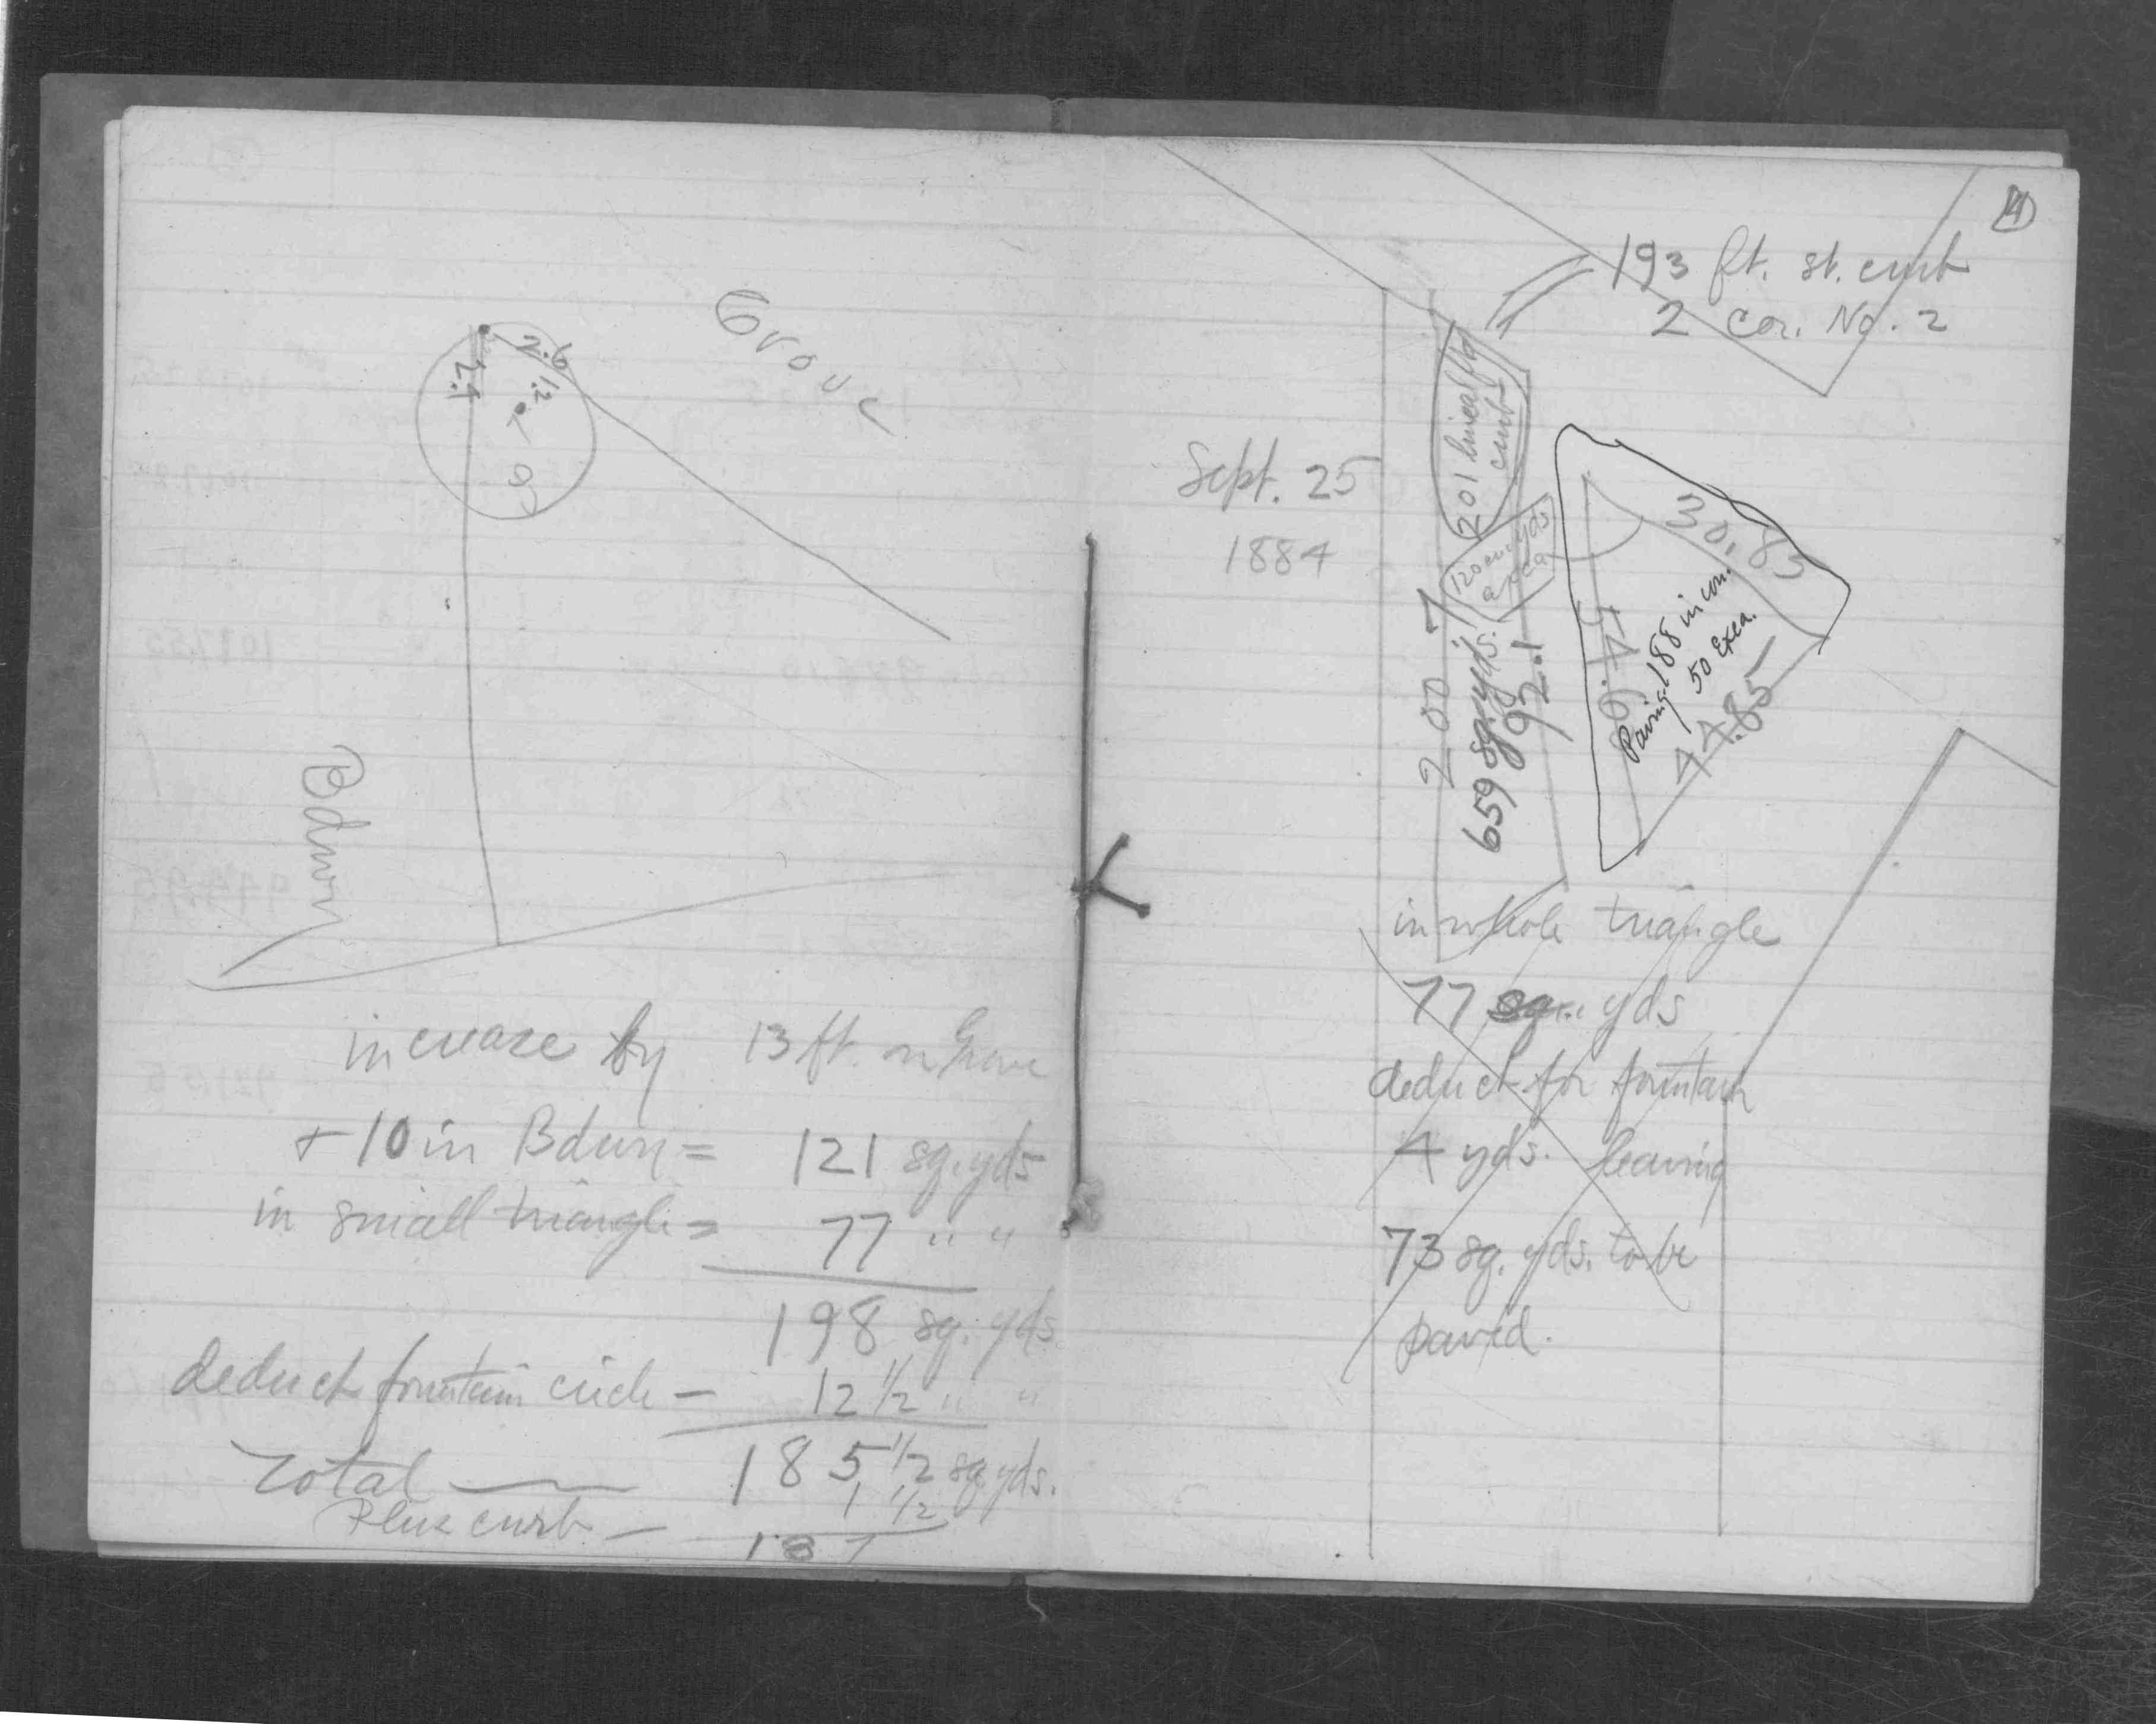 Grove
2.6
1.7
1.2
Bdwy
increase by 13 ft. on Grove
+ 10 in Bdwy = 121 sq. yds
in small triangle = 77 " "
198 sq. yds.
deduct fountain circle - 12 1/2 " "
Total 185 1/2 sq yds.
Plus curb - 1 1/2
187
4
193 ft. st. curb
2 cor. No. 2
Sept. 25
1884
201 lineal ft
curb
120 cu. yds
exca
200.7
659 sq. yds.
92.1
30.83
54.68
Paving 188 in con.
50 Exca.
44.85
in whole triangle
77 sq. yds
deduct for fountain
4 yds. leaving
73 sq. yds. to be
paved.